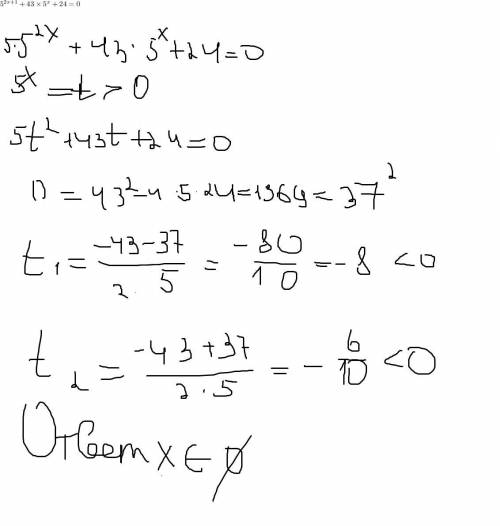 5^{2x+1} + 43 × 5^x + 24 = 0
5·5^{2x} + 43·5^x + 24 = 0
5^x = t > 0
5t^2 + 43t + 24 = 0
D = 43^2 - 4·5·24 = 1369 = 37^2
t_1 = \frac{-43-37}{2·5} = \frac{-80}{10} = -8 < 0
t_2 = \frac{-43+37}{2·5} = -\frac{6}{10} < 0
Ответ x ∈ ∅